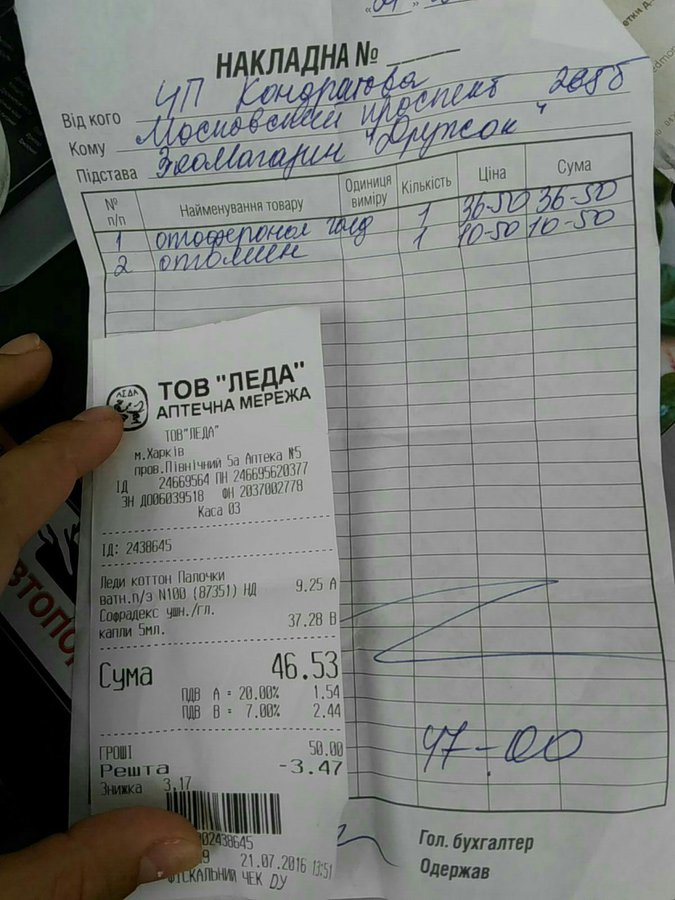 НАКЛАДНА №
Від кого ЧП Кондратова
Кому Московский проспект 265б
Підстава Зоомагазин "Дружок"
№ п/п Найменування товару Одиниця виміру Кількість Ціна Сума
1 отоферонол голд 1 36-50 36-50
2 отолмин 1 10-50 10-50
47-00
Гол. бухгалтер
Одержав
ЛЕДА
ТОВ "ЛЕДА"
АПТЕЧНА МЕРЕЖА
ТОВ"ЛЕДА"
м.Харків
пров.Північний 5а Аптека №5
ІД 24669564 ПН 246695620377
ЗН ДО06039518 ФН 2037002778
Каса 03
ІД: 2438645
Леди коттон Палочки
ватн.п/э N100 (87351) НД 9.25 А
Софрадекс ушн./гл.
капли 5мл. 37.28 В
Сума 46.53
ПДВ А = 20.00% 1.54
ПДВ В = 7.00% 2.44
ГРОШІ 50.00
Решта -3.47
Знижка 3.17
02438645
21.07.2016 13:51
ФІСКАЛЬНИЙ ЧЕК